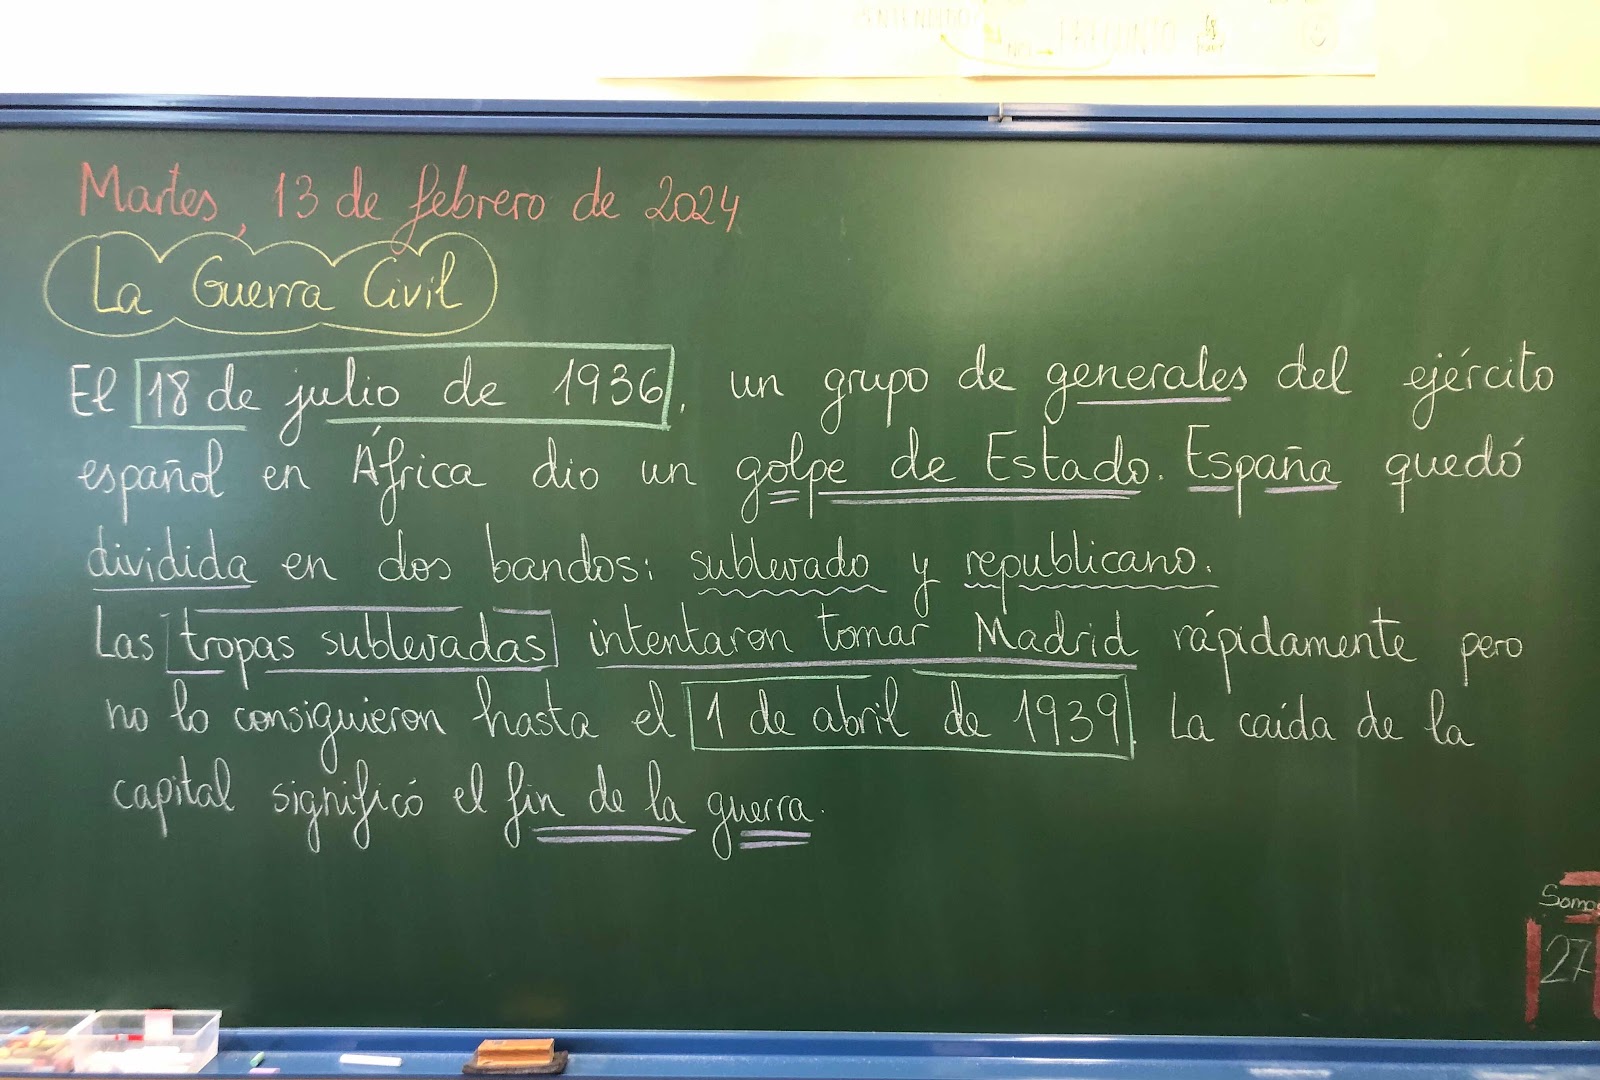 ENTENDIDO
NO → PREGUNTO
Martes, 13 de febrero de 2024
La Guerra Civil
El 18 de julio de 1936, un grupo de generales del ejército
español en África dio un golpe de Estado. España quedó
dividida en dos bandos: sublevado y republicano.
Las tropas sublevadas intentaron tomar Madrid rápidamente pero
no lo consiguieron hasta el 1 de abril de 1939. La caída de la
capital significó el fin de la guerra.
Somos
27